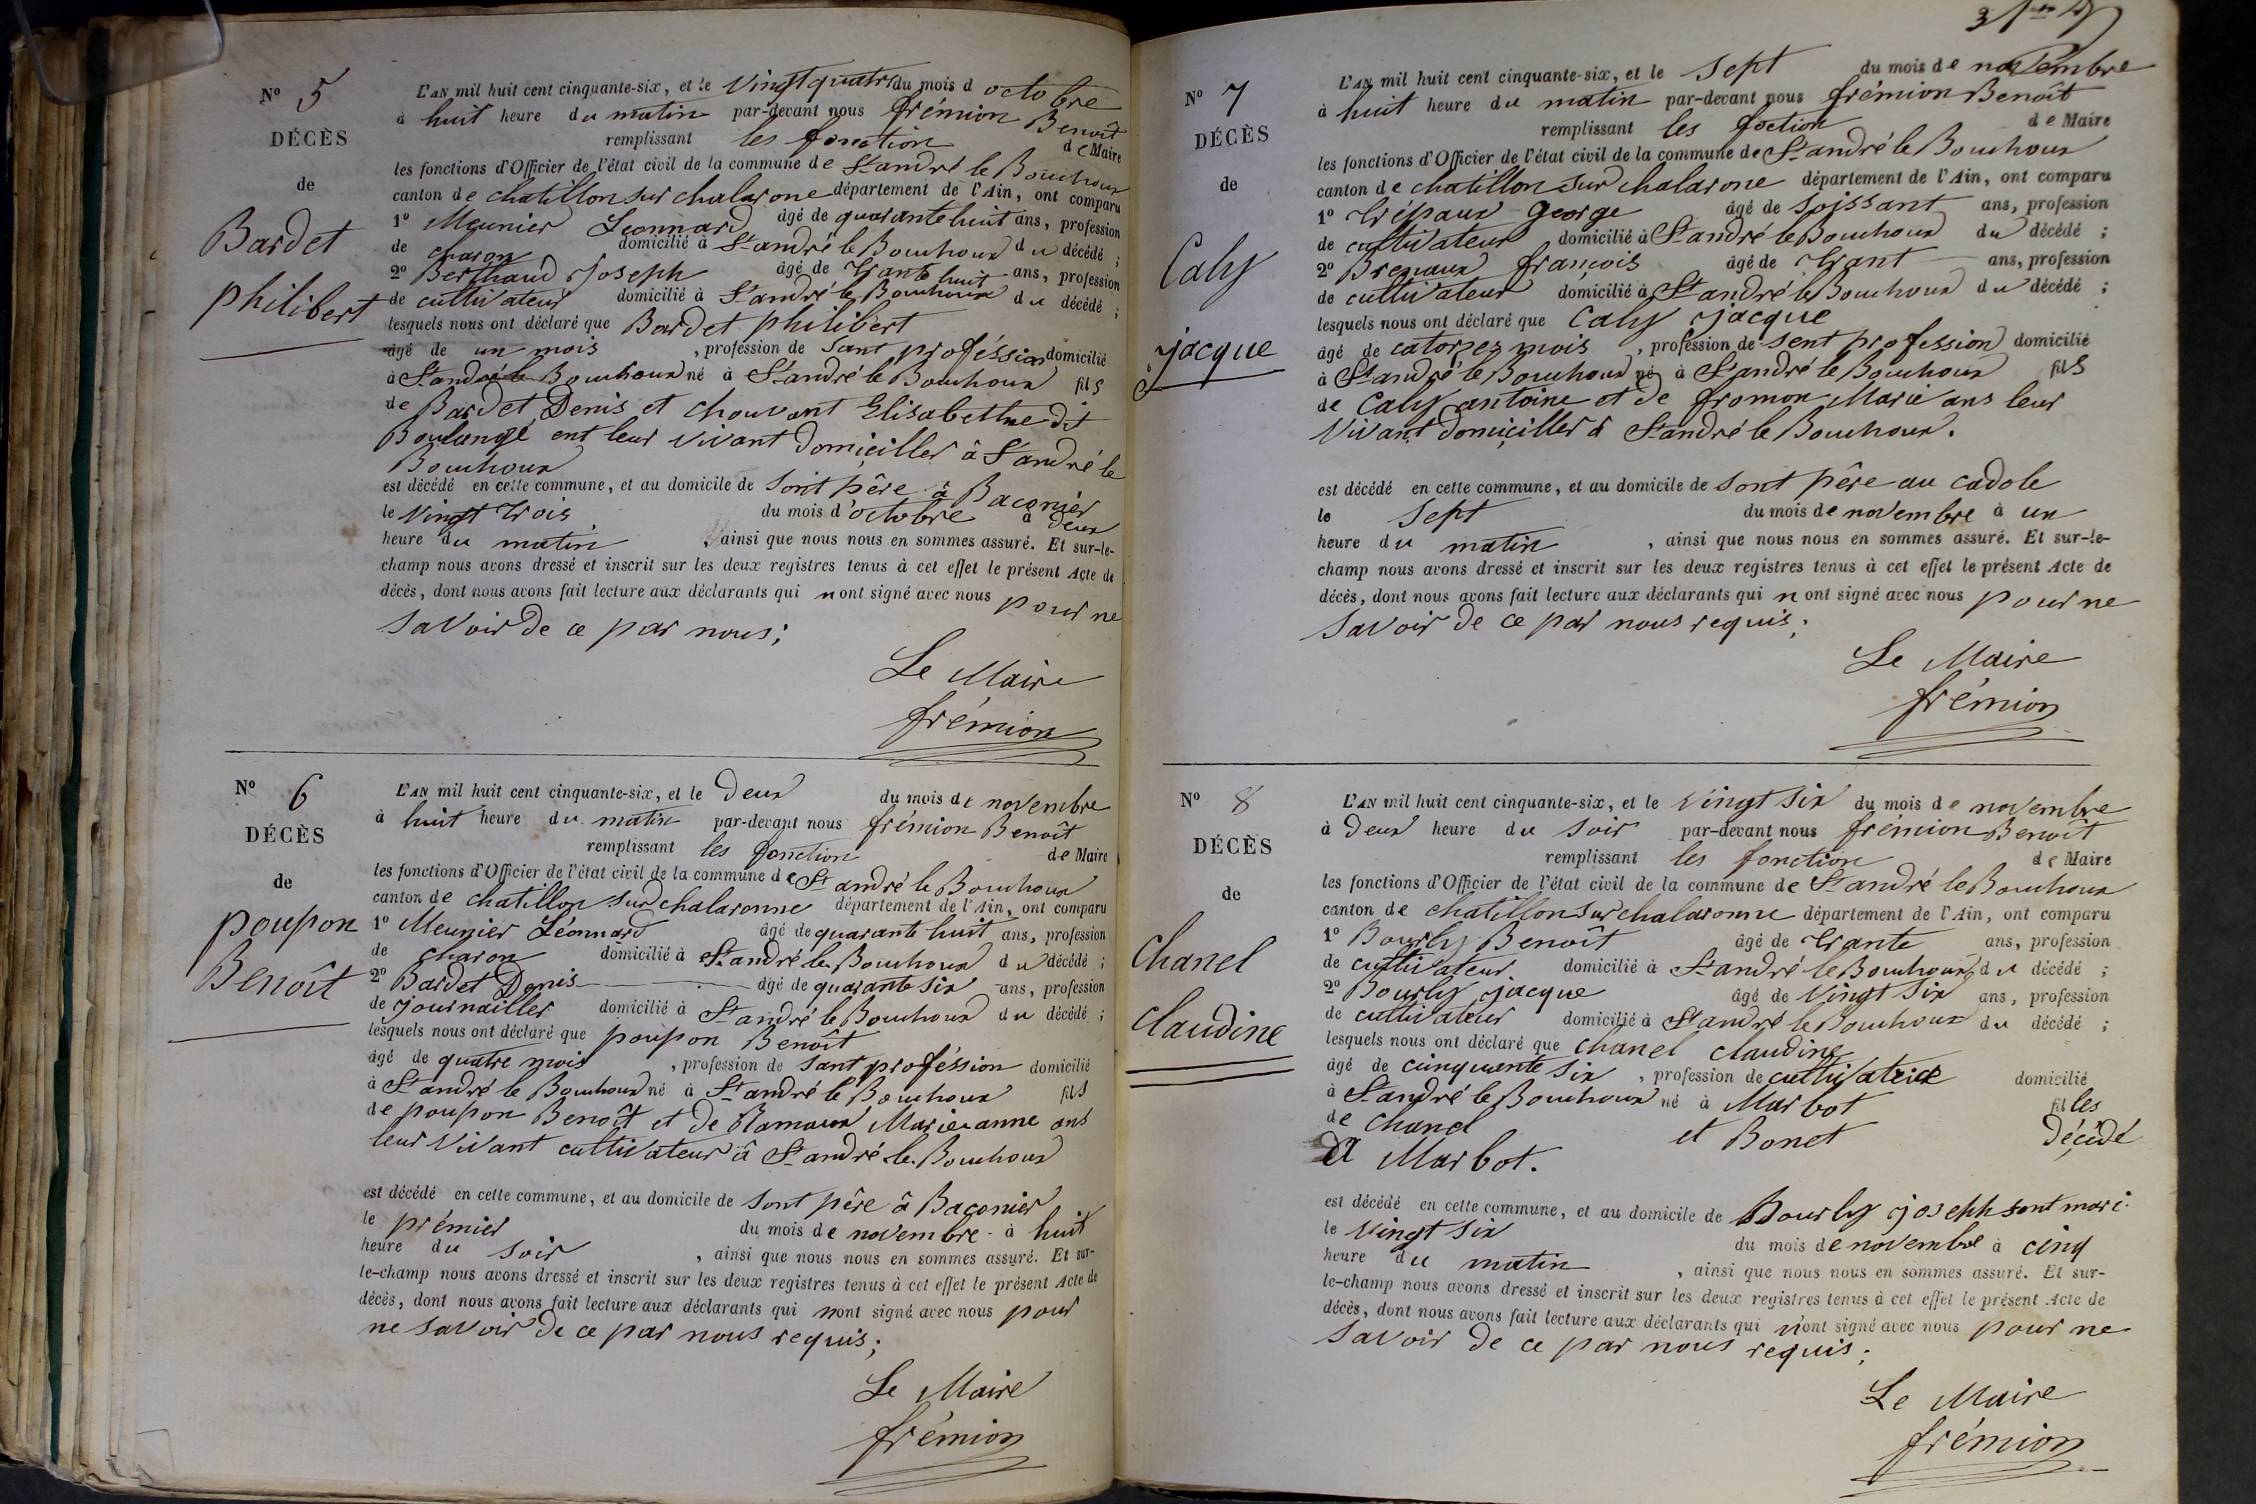 Nº 5
DÉCÈS
de
Bardet
philibert
L'AN mil huit cent cinquante-six, et le Vingt quatre du mois d octobre
à huit heure du matin par-devant nous frémion Benoît
remplissant les fonction de Maire
les fonctions d'Officier de l'état civil de la commune de St andré le Bouchoux
canton de chatillon sur chalarone département de l'Ain, ont comparu
1º Meunier Léonnard âgé de quarante huit ans, profession
de charon domicilié à St andré le Bouchoux du décédé ;
2º Berthaud Joseph âgé de trante huit ans, profession
de cultivateur domicilié à St andré le Bouchoux du décédé ;
lesquels nous ont déclaré que Bardet philibert
âgé de un mois , profession de Sant proféssion domicilié
à St andré le Bouchoux né à St andré le Bouchoux fils
de Bardet Denis et chouvant Elisabethe dit
Boulangé ent leur vivant Domiciller à St andré le
Bouchoux
est décédé en cette commune, et au domicile de sont père à Baconier
le vingt trois du mois d'octobre à deux
heure du matin , ainsi que nous nous en sommes assuré. Et sur-le-
champ nous avons dressé et inscrit sur les deux registres tenus à cet effet le présent Acte de
décès, dont nous avons fait lecture aux déclarants qui n ont signé avec nous pour ne
savoir de ce par nous;
Le Maire
frémion
Nº 6
DÉCÈS
de
poupon
Benoît
L'AN mil huit cent cinquante-six, et le deux du mois de novembre
à huit heure du matin par-devant nous frémion Benoît
remplissant les fonction de Maire
les fonctions d'Officier de l'état civil de la commune de St andré le Bouchoux
canton de chatillon sur chalaronne département de l'Ain, ont comparu
1º Meunier Léonnard âgé de quarante huit ans, profession
de charon domicilié à St andré le Bouchoux du décédé ;
2º Bardet Denis âgé de quarante six ans, profession
de journailler domicilié à St andré le Bouchoux du décédé ;
lesquels nous ont déclaré que poupon Benoît
âgé de quatre mois , profession de Sant proféssion domicilié
à St andré le Bouchoux né à St andré le Bouchoux fils
de poupon Benoît et de Ramaux Marie anne ans
leur vivant cultivateur à St andré le Bouchoux
est décédé en cette commune, et au domicile de sont père à Baconier
le prémier du mois de novembre à huit
heure du soir , ainsi que nous nous en sommes assuré. Et sur-
le-champ nous avons dressé et inscrit sur les deux registres tenus à cet effet le présent Acte de
décès, dont nous avons fait lecture aux déclarants qui nont signé avec nous pour
ne savoir de ce par nous requis;
Le Maire
frémion
Nº 7
DÉCÈS
de
Caly
jacque
L'AN mil huit cent cinquante-six, et le sept du mois de novembre
à huit heure du matin par-devant nous frémion Benoît
remplissant les foction de Maire
les fonctions d'Officier de l'état civil de la commune de St andré le Bouchoux
canton de chatillon sur chalarone département de l'Ain, ont comparu
1º Trépaux george âgé de soissant ans, profession
de cultivateur domicilié à St andré le Bouchoux du décédé ;
2º françois âgé de trant ans, profession
de cultivateur domicilié à St andré le Bouchoux du décédé ;
lesquels nous ont déclaré que Caly jacque
âgé de catorzes mois , profession de sent profession domicilié
à St andré le Bouchoux né à St andré le Bouchoux fils
de Caly antoine et de fromon Marie ans leur
vivant domiciller à St andré le Bouchoux.
est décédé en cette commune, et au domicile de sont père au cadole
le sept du mois de novembre à un
heure du matin , ainsi que nous nous en sommes assuré. Et sur-le-
champ nous avons dressé et inscrit sur les deux registres tenus à cet effet le présent Acte de
décès, dont nous avons fait lecture aux déclarants qui n ont signé avec nous pour ne
savoir de ce par nous requis;
Le Maire
frémion
Nº 8
DÉCÈS
de
Chanel
claudine
L'AN mil huit cent cinquante-six, et le vingt six du mois de novembre
à deux heure du soir par-devant nous frémion Benoît
remplissant les fonction de Maire
les fonctions d'Officier de l'état civil de la commune de St andré le Bouchoux
canton de chatillon sur chalaronne département de l'Ain, ont comparu
1º Bourly Benoît âgé de trante ans, profession
de cultivateur domicilié à St andré le Bouchoux du décédé ;
2º Bourly jacque âgé de vingt six ans, profession
de cultivateur domicilié à St andré le Bouchoux du décédé ;
lesquels nous ont déclaré que chanel claudine
âgé de cinquente six , profession de cultivatrice domicilié
à St andré le Bouchoux né à Marbot filles
de chanel et Bonet décidé
à Marbot.
est décédé en cette commune, et au domicile de Bourly josehh sont mari
le vingt six du mois de novembre à cinq
heure du matin , ainsi que nous nous en sommes assuré. Et sur-
le-champ nous avons dressé et inscrit sur les deux registres tenus à cet effet le présent Acte de
décès, dont nous avons fait lecture aux déclarants qui n'ont signé avec nous pour ne
savoir de ce par nous requis;
Le Maire
frémion